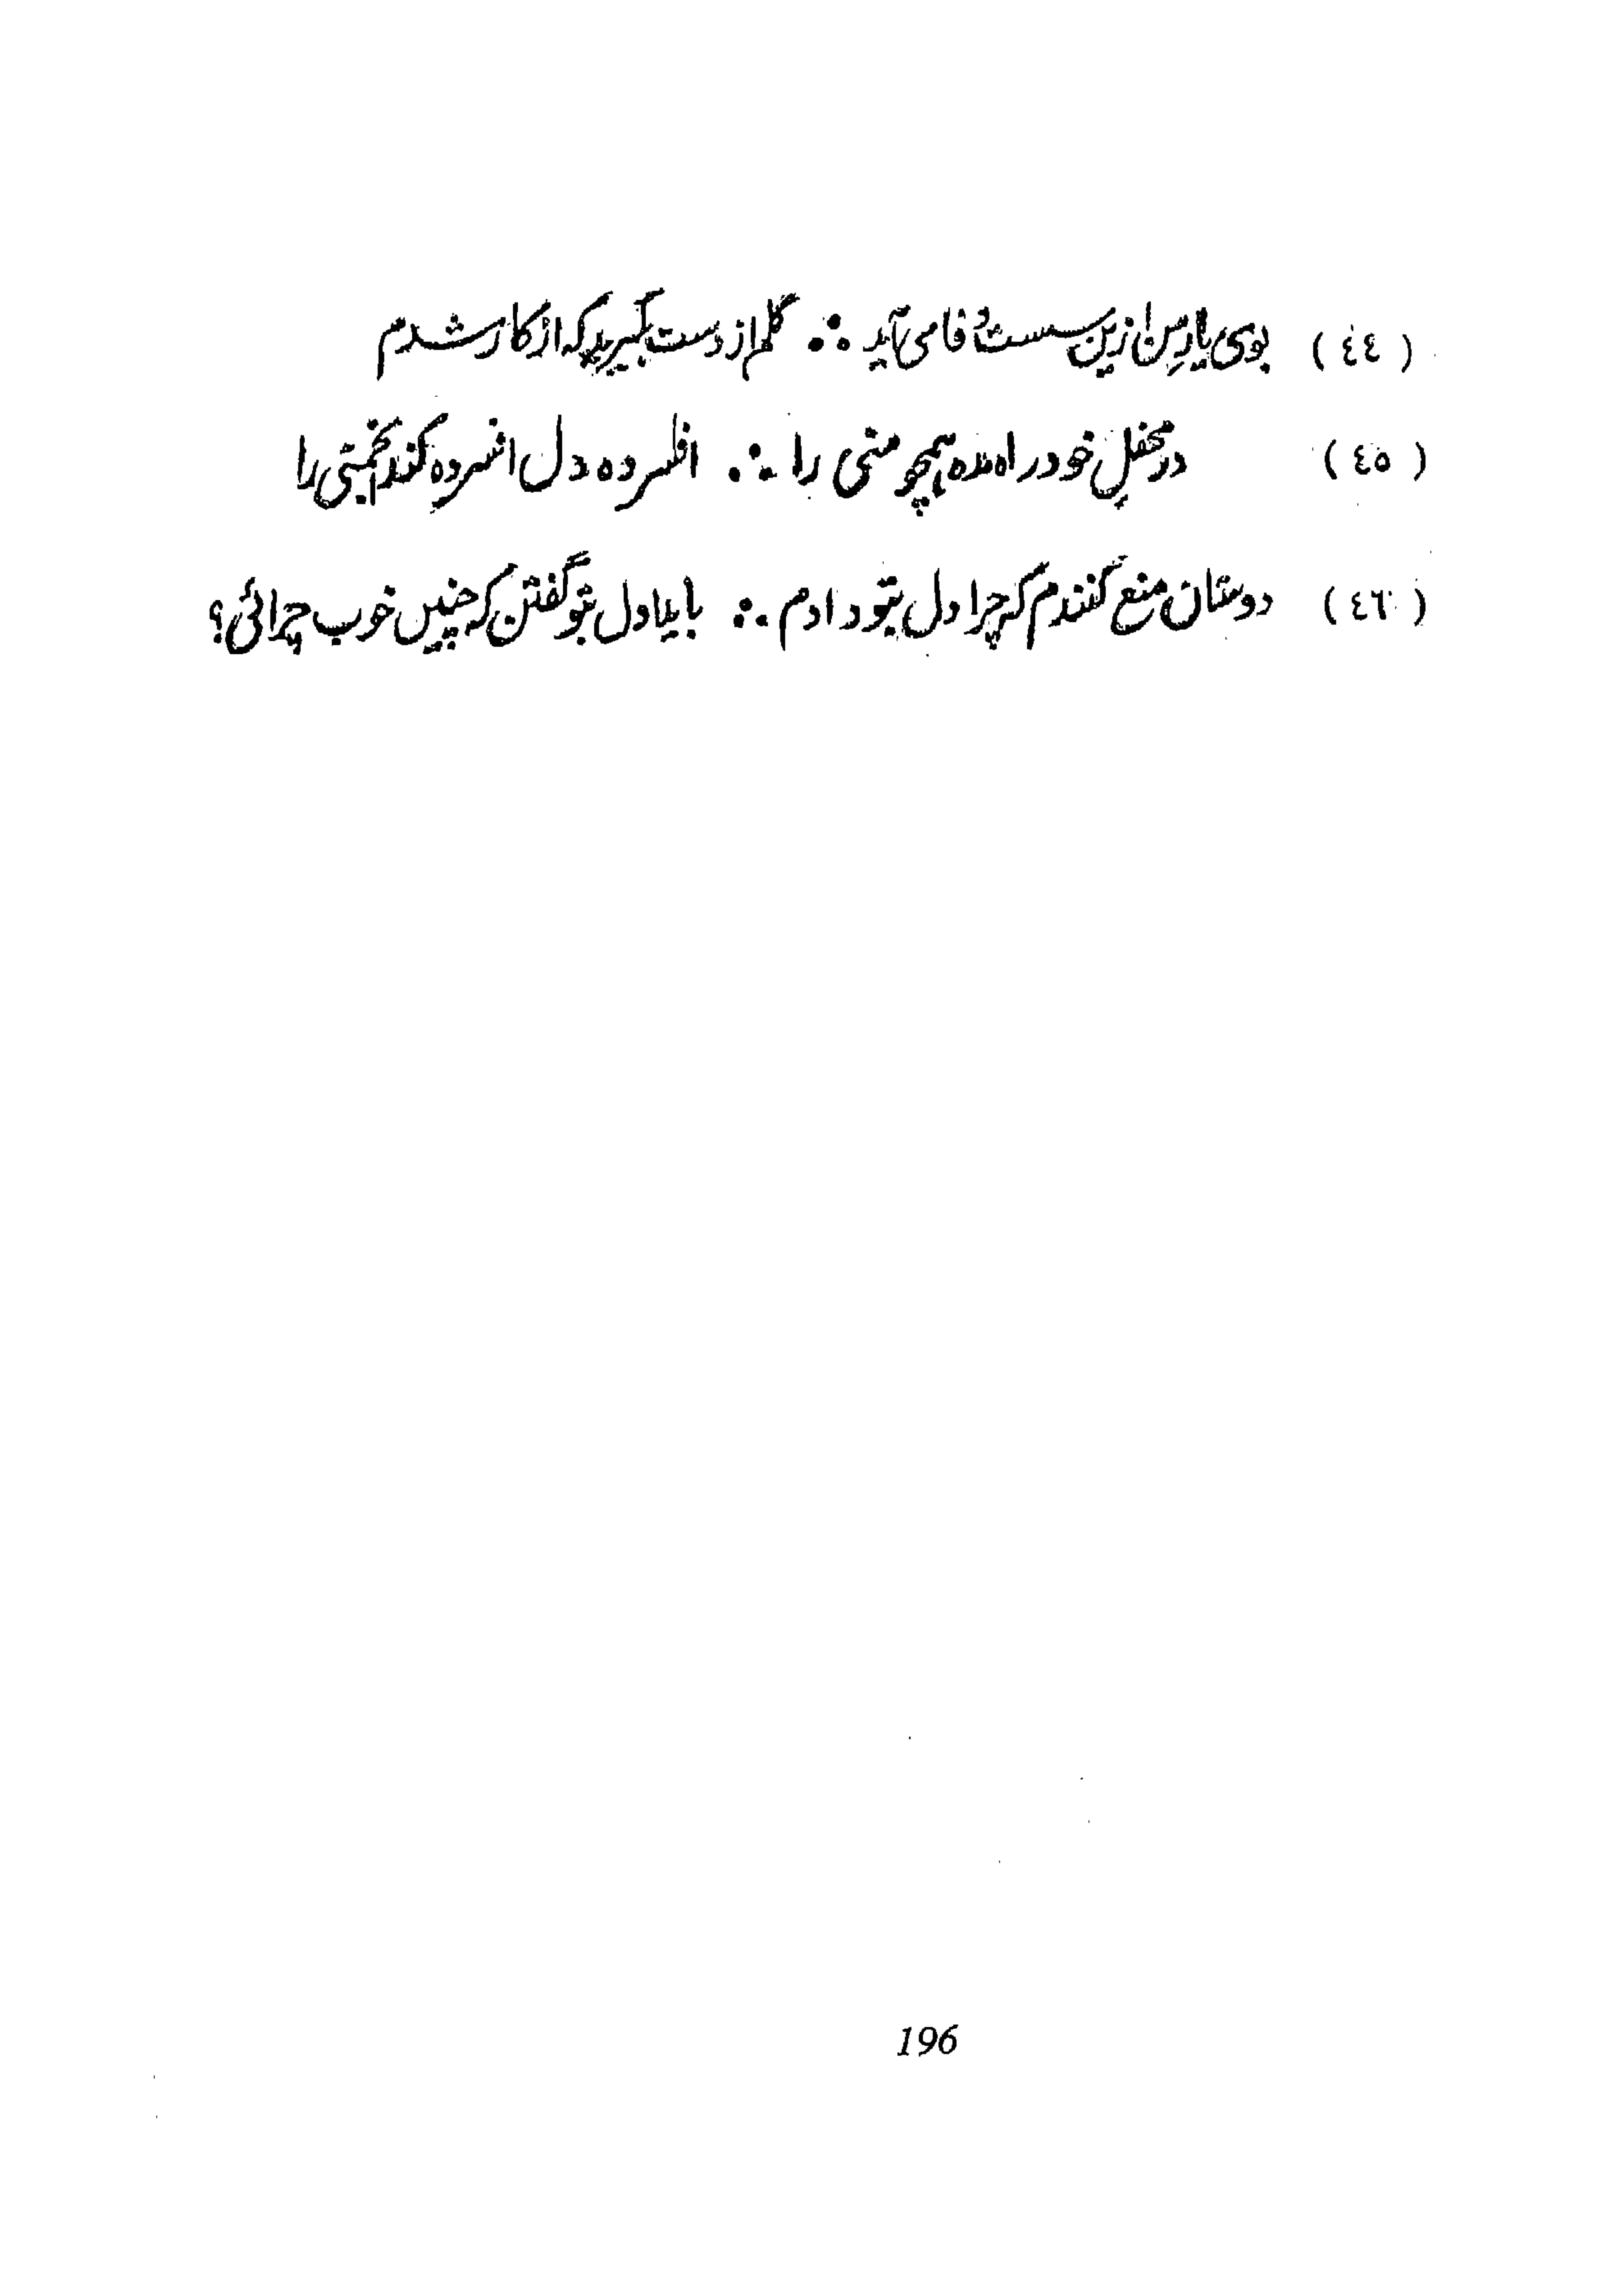 (٤٤) بوی یار من ازین سست وفا می آید ∴ گلم از دست بگیرید که از کار شدم
(٤٥) در محفل خود راه مده همچو منی را ∴ افسرده دل افسرده کند انجمنی را
(٤٦) دوستان منع کنندم که چرا دل بتو دادم ∴ باید اول بتو گفتن که چنیں خوب چرائی؟
196